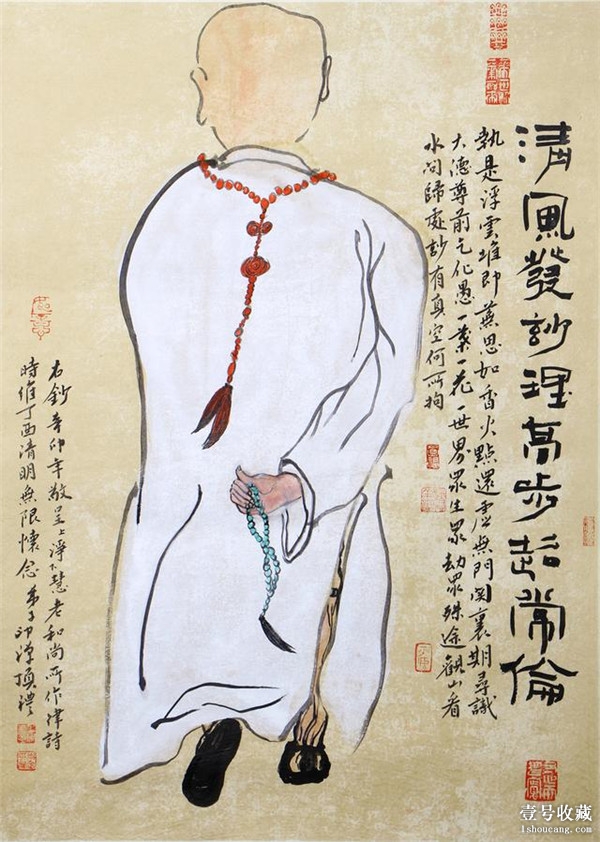 清風發玅理高步超常倫
孰是浮雲誰即蕪思如香火點還虛無門関裏期尋識
大德尊前乞化愚一葉一花一世界眾生眾劫眾殊途觀山看
水問歸處玅有真空何所拘
右鈔辛卯年敬呈上淨下慧老和尚所作律詩
時維丁酉清明無限懷念弟子印頂禮
壹号收藏
1shoucang.com